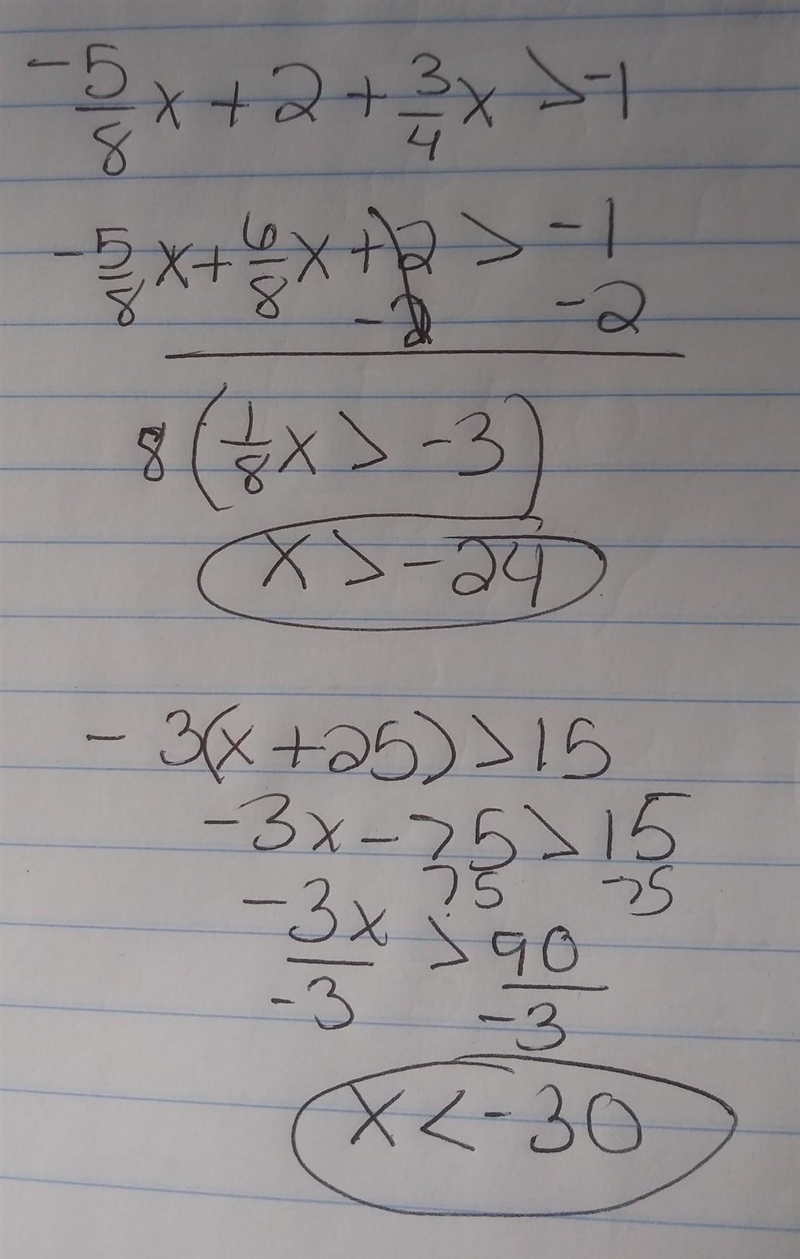 -5/8 x + 2 + 3/4 x > -1
-5/8 x + 6/8 x + 2 > -1
-2 -2
8 ( 1/8 x > -3 )
x > -24
- 3(x + 25) > 15
-3x - 75 > 15
75 75
-3x/-3 > 90/-3
x < -30